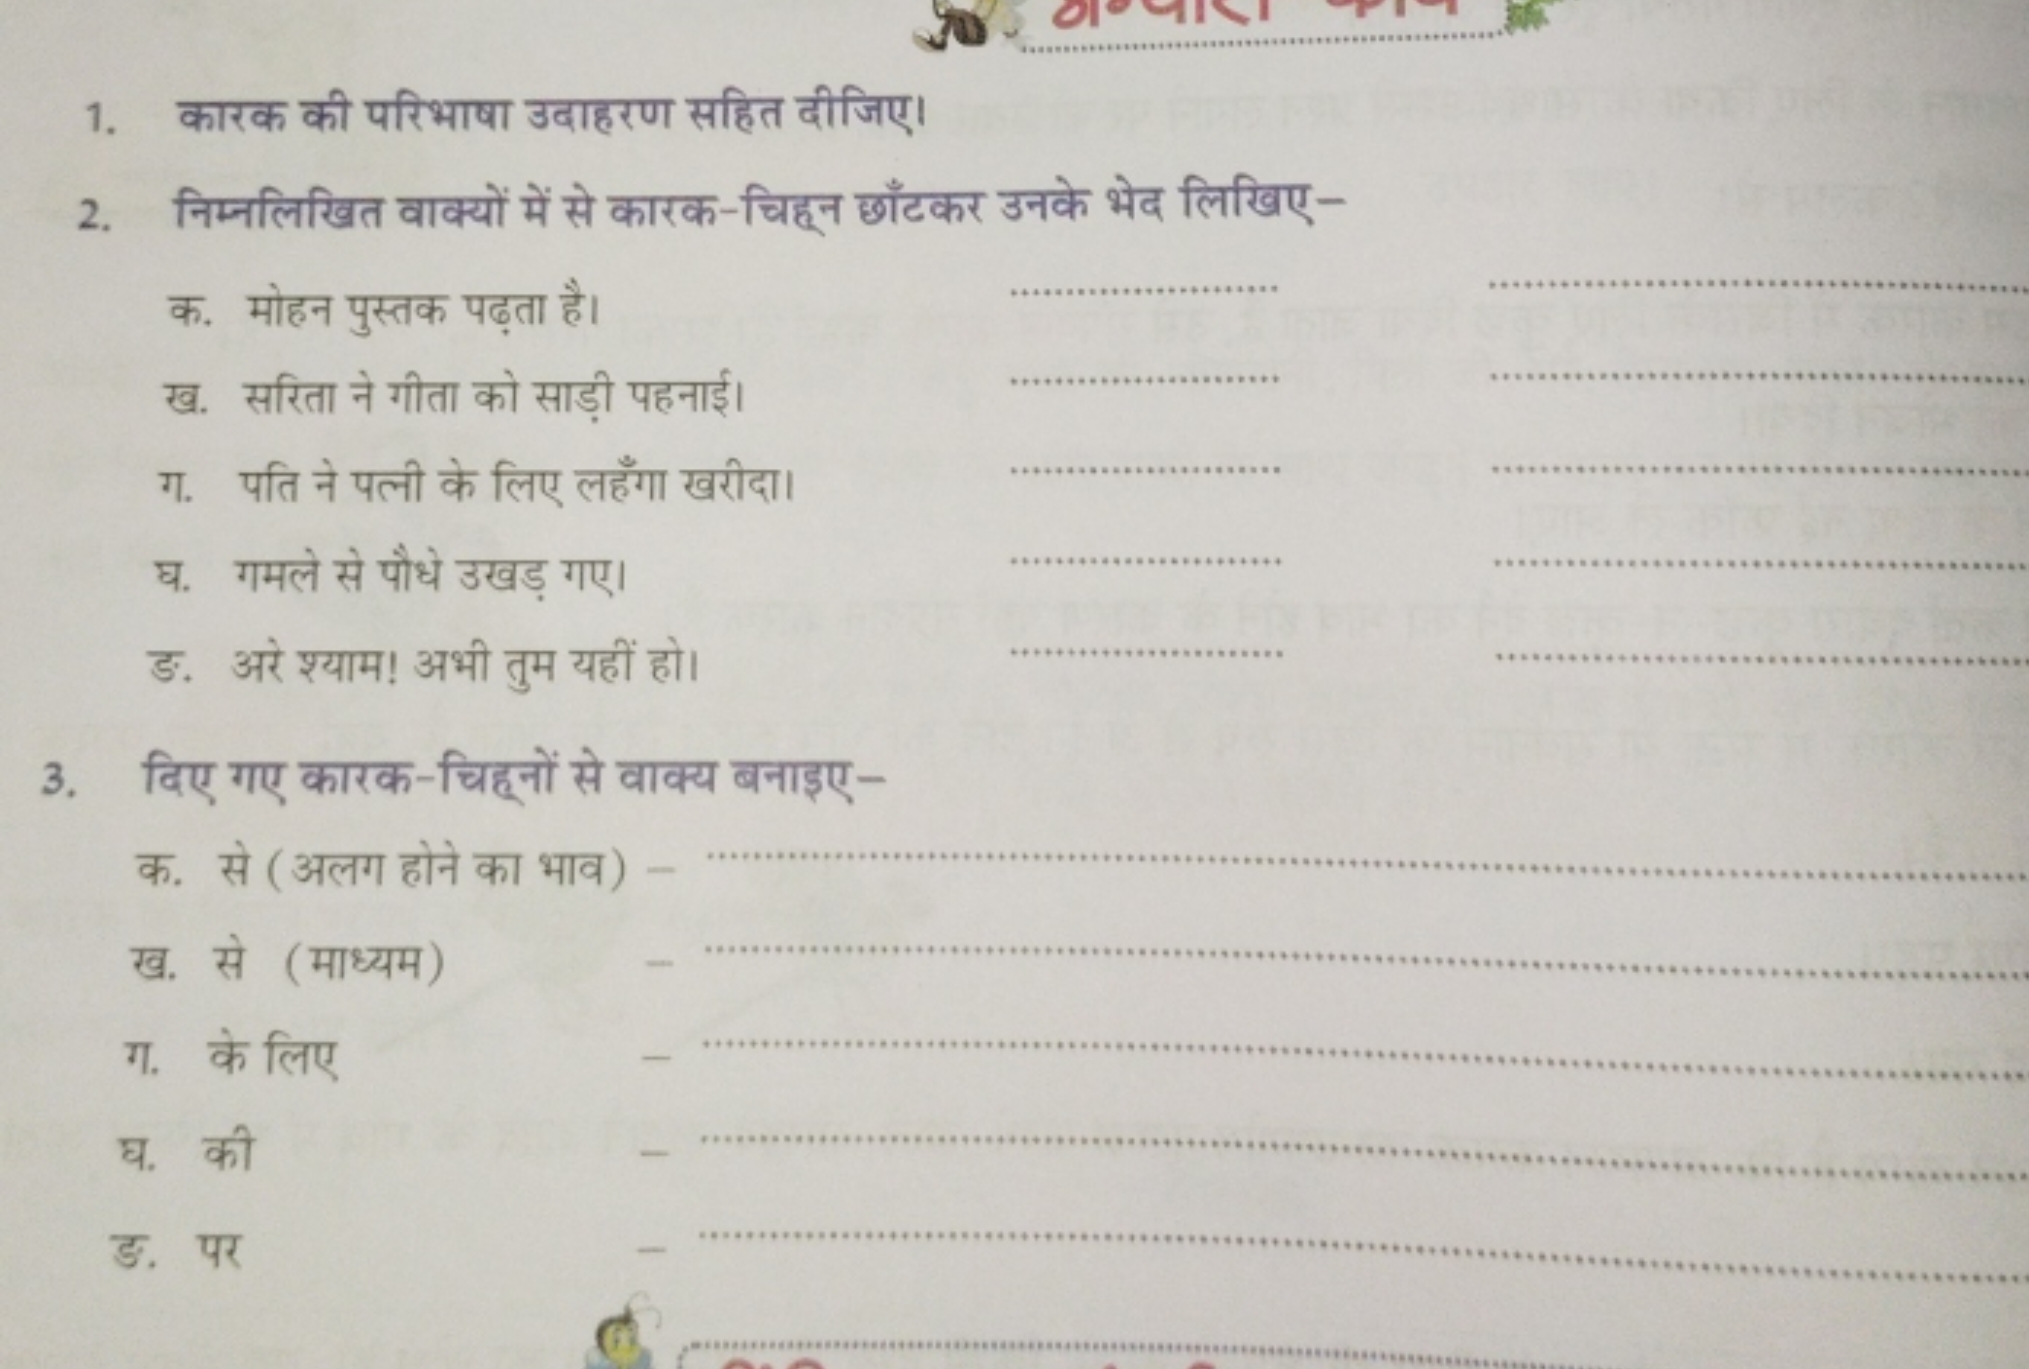 1. कारक की परिभाषा उदाहरण सहित दीजिए।
2. निम्नलिखित वाक्यों में से कारक-चिह्न छाँटकर उनके भेद लिखिए–
क. मोहन पुस्तक पढ़ता है।
ख. सरिता ने गीता को साड़ी पहनाई।
ग. पति ने पत्नी के लिए लहँगा खरीदा।
घ. गमले से पौधे उखड़ गए।
ङ. अरे श्याम! अभी तुम यहीं हो।
3. दिए गए कारक-चिह्नों से वाक्य बनाइए–
क. से (अलग होने का भाव) –
ख. से (माध्यम) –
ग. के लिए –
घ. की –
ङ. पर –